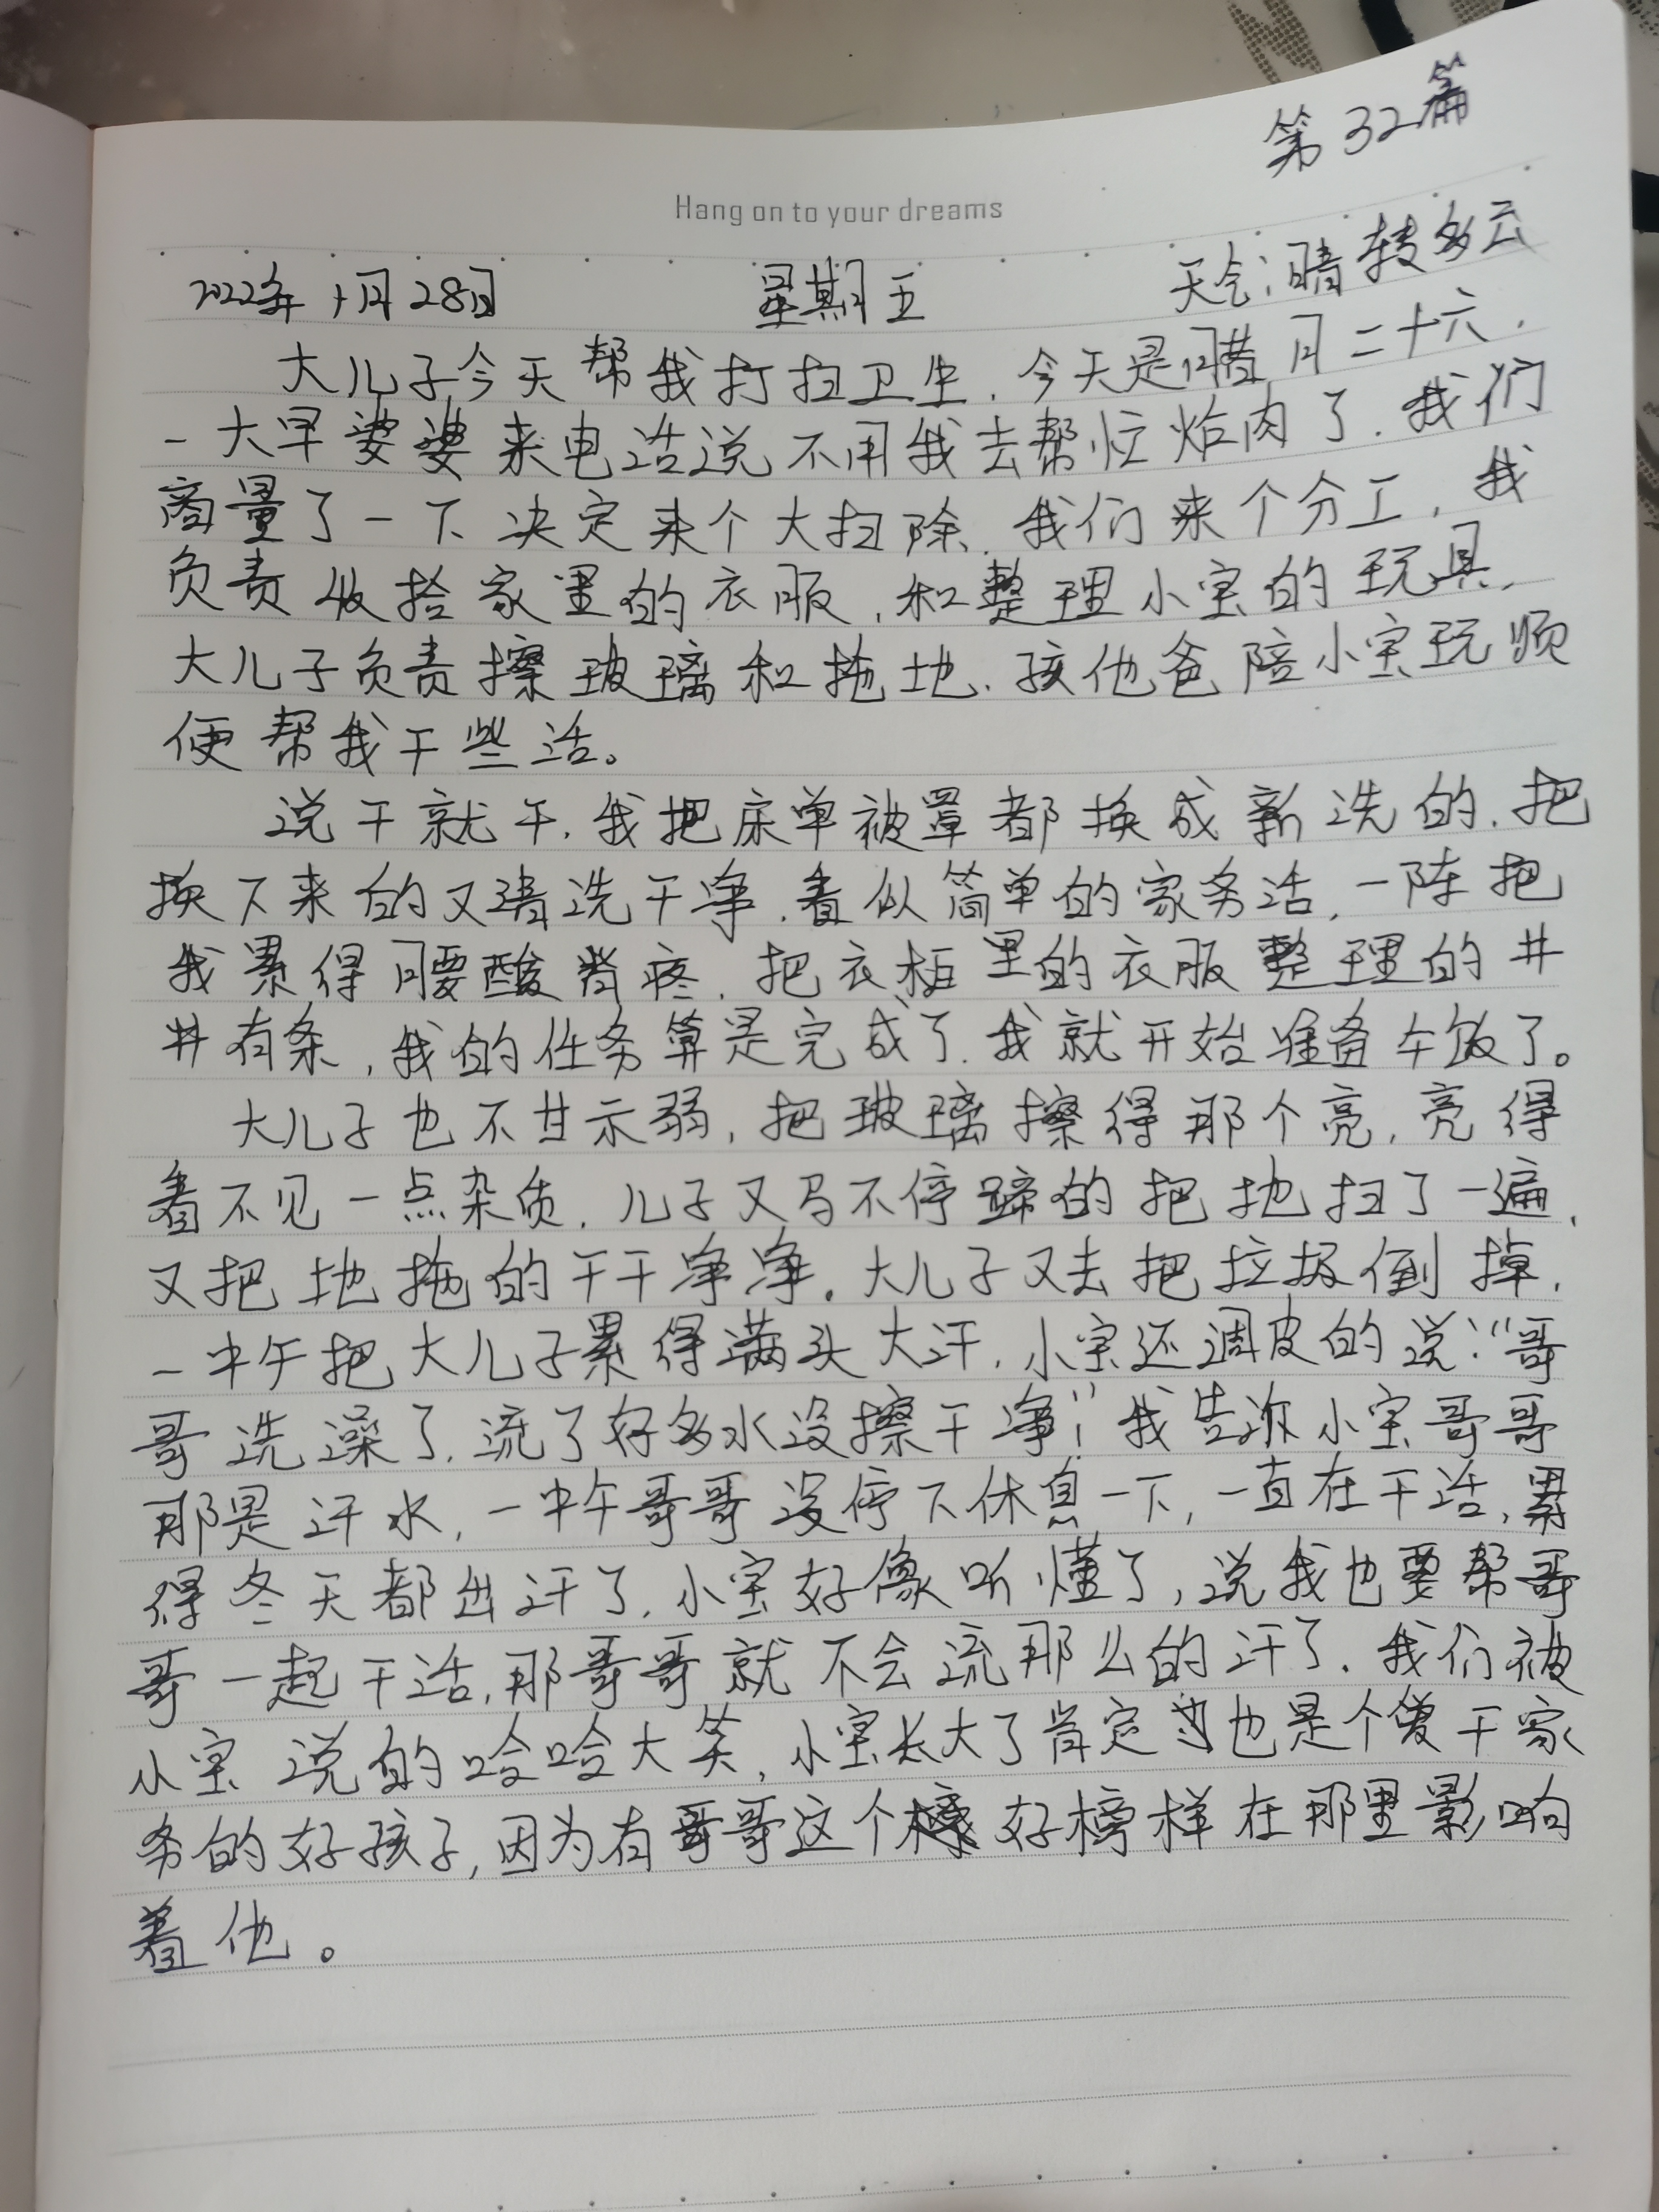 第32篇
Hang on to your dreams
2022年1月28日 星期五 天气:晴转多云
大儿子今天帮我打扫卫生,今天是腊月二十六,
一大早婆婆来电话说不用我去帮忙烩肉了.我们
商量了一下决定来个大扫除.我们来个分工,我
负责收拾家里的衣服,和整理小宝的玩具,
大儿子负责擦玻璃和拖地.孩他爸陪小宝玩顺
便帮我干些活。
说干就干.我把床单被罩都换成新洗的.把
换下来的又清洗干净.看似简单的家务活,一阵把
我累得腰酸背疼.把衣柜里的衣服整理的井
井有条,我的任务算是完成了.我就开始准备午饭了。
大儿子也不甘示弱,把玻璃擦得那个亮,亮得
看不见一点杂质.儿子又马不停蹄的把地扫了一遍,
又把地拖的干干净净.大儿子又去把垃圾倒掉,
一中午把大儿子累得满头大汗,小宝还调皮的说:“哥
哥洗澡了,流了好多水没擦干净!”我告诉小宝哥哥
那是汗水,一中午哥哥没停下休息一下,一直在干活,累
得冬天都出汗了.小宝好像听懂了,说我也要帮哥
哥一起干活,那哥哥就不会流那么的汗了.我们被
小宝说的哈哈大笑,小宝长大了肯定也是个爱干家
务的好孩子,因为有哥哥这个好榜样在那里影响
着他。